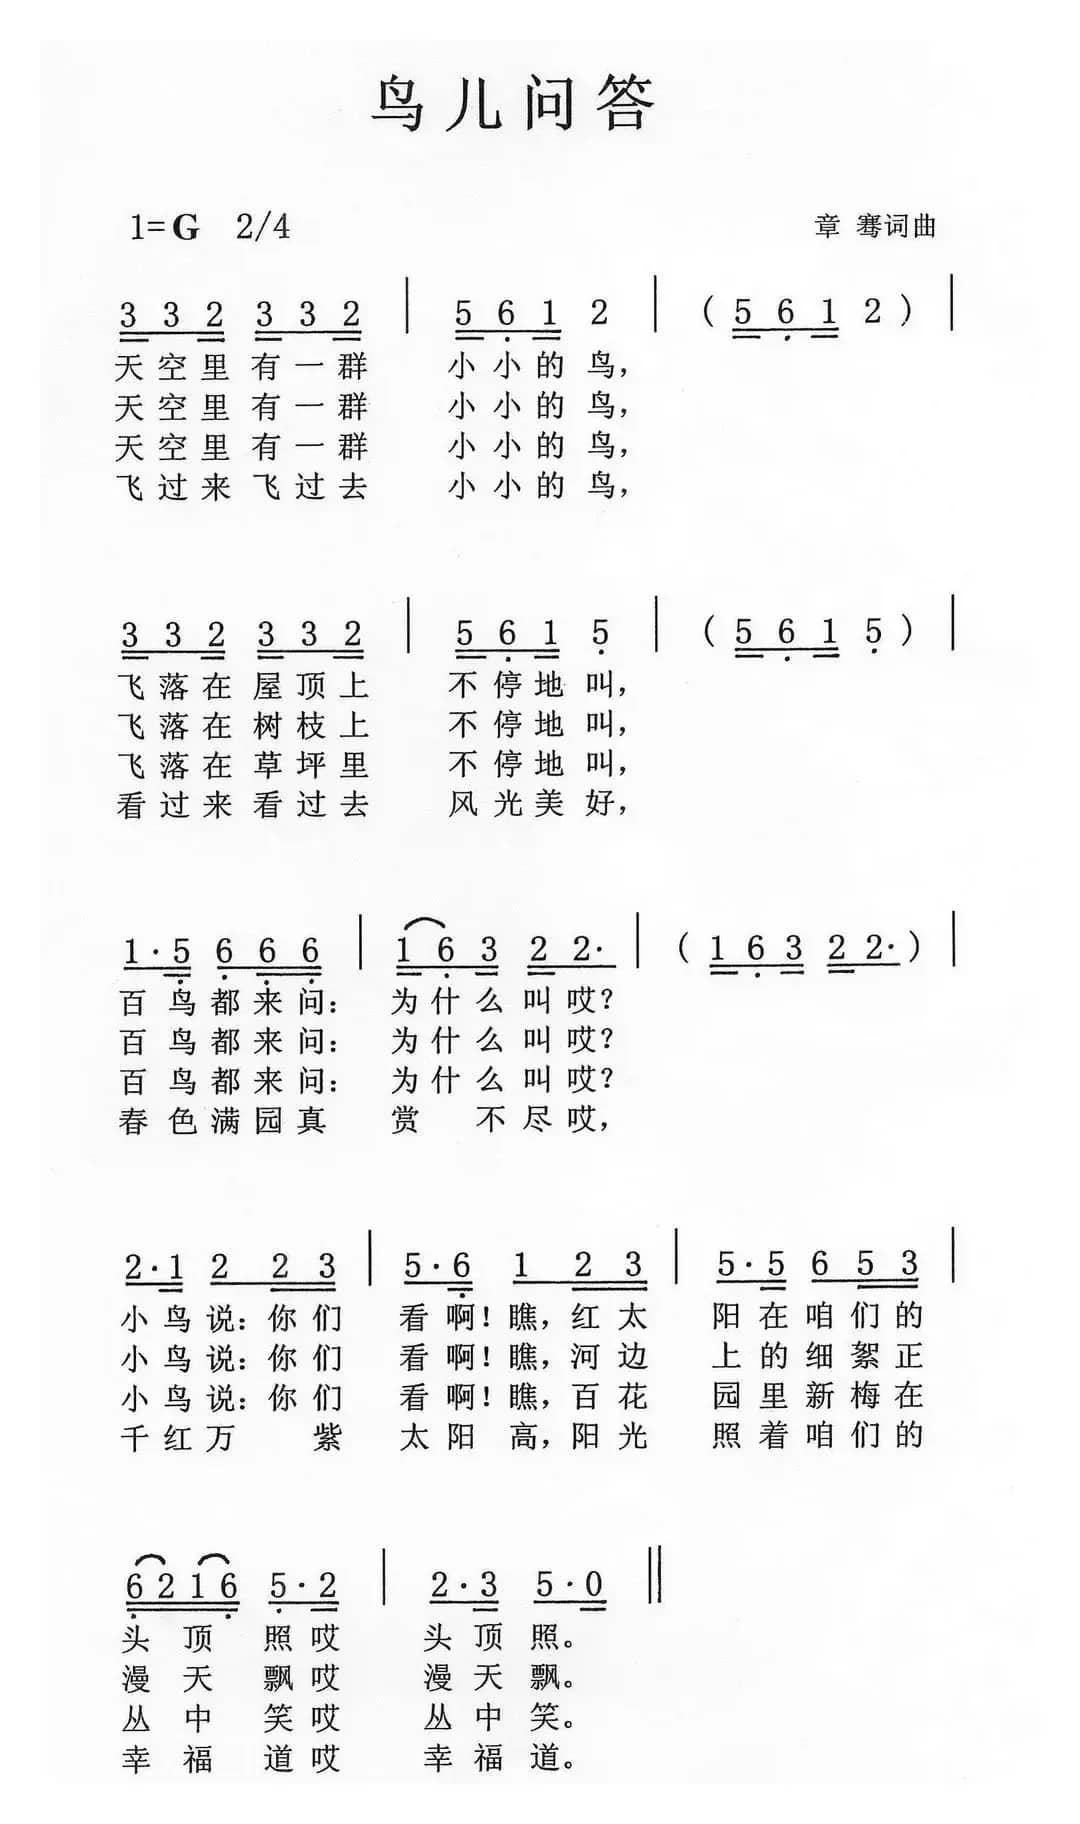 鸟儿问答
1=G 2/4 章 骞词曲
3 3 2 3 3 2 | 5 6 1 2 | ( 5 6 1 2 ) |
天空里有一群 小小的鸟，
天空里有一群 小小的鸟，
天空里有一群 小小的鸟，
飞过来飞过去 小小的鸟，
3 3 2 3 3 2 | 5 6 1 5 | ( 5 6 1 5 ) |
飞落在屋顶上 不停地叫，
飞落在树枝上 不停地叫，
飞落在草坪里 不停地叫，
看过来看过去 风光美好，
1 · 5 6 6 6 | 1 6 3 2 2 · | ( 1 6 3 2 2 · ) |
百鸟都来问： 为什么叫哎？
百鸟都来问： 为什么叫哎？
百鸟都来问： 为什么叫哎？
春色满园真 赏 不尽哎，
2 · 1 2 2 3 | 5 · 6 1 2 3 | 5 · 5 6 5 3 |
小鸟说：你们 看啊！瞧，红太 阳在咱们的
小鸟说：你们 看啊！瞧，河边 上的细絮正
小鸟说：你们 看啊！瞧，百花 园里新梅在
千红万 紫 太阳高，阳光 照着咱们的
6 2 1 6 5 · 2 | 2 · 3 5 · 0 ‖
头顶 照哎 头顶照。
漫天 飘哎 漫天飘。
丛中 笑哎 丛中笑。
幸福 道哎 幸福道。